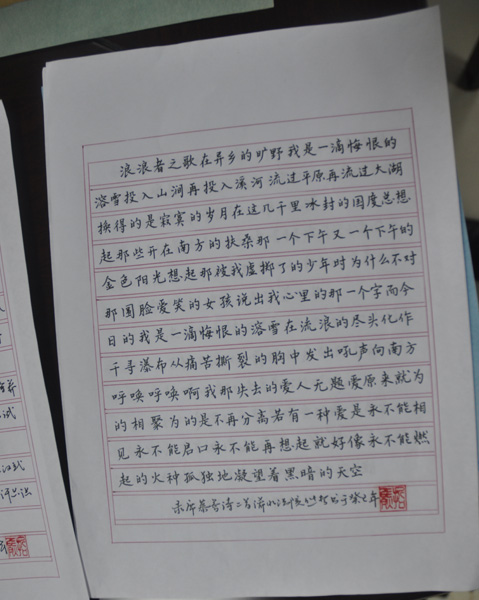 浪浪者之歌在异乡的旷野我是一滴悔恨的
溶雪投入山涧再投入溪河流过平原再流过大湖
换得的是寂寞的岁月在这几千里冰封的国度总想
起那些开在南方的扶桑那一个下午又一个下午的
金色阳光想起那被我虚掷了的少年时为什么不对
那圆脸爱笑的女孩说出我心里的那一个字而今
日的我是一滴悔恨的溶雪在流浪的尽头化作
千寻瀑布从痛苦撕裂的胸中发出吼声向南方
呼唤呼唤啊我那失去的爱人无题爱原来就为
的相聚为的是不再分离若有一种爱是永不能相
见永不能启口永不能再想起就好像永不能燃
起的火种孤独地凝望着黑暗的天空
录席慕蓉诗二首